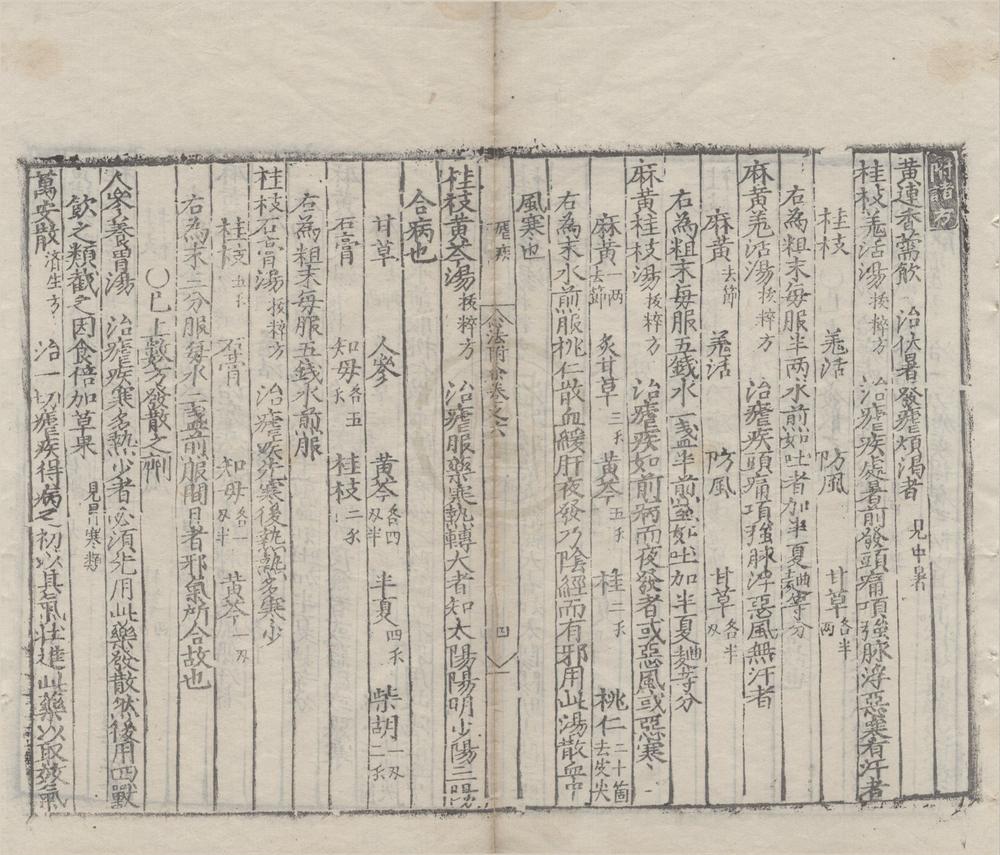 附諸方
黃連香薷飲　治伏暑發瘧煩渴者　見中暑
桂枝羗活湯　拔粹方　治瘧疾處暑前發頭痛項強脉浮惡寒有汗者
桂枝　羗活　防風　甘草各半兩
右為粗末每服半兩水煎如吐者加半夏麯等分
麻黃羗活湯　拔粹方　治瘧疾頭痛項強脉浮惡風無汗者
麻黃去節　羗活　防風　甘草各半刄
右為粗末每服五錢水一盞半煎至如吐加半夏麯等分
麻黃桂枝湯　拔粹方　治瘧疾如前病而夜發者或惡風或惡寒
麻黃一兩去節　炙甘草三不　黃芩五不　桂二不　桃仁二十箇去皮尖
右為末水煎服桃仁散血緩肝夜發乃陰經而有邪用此湯散血中
風寒也
瘧疾　心法附餘卷之六　四
桂枝黃芩湯　拔粹方　治瘧服藥寒熱轉大者知太陽陽明少陽三陽
合病也
甘草　人參　黃芩各四刄半　半夏四不　柴胡一刄二不
石膏　知母各五不　桂枝二不
右為粗末每服五錢水煎服
桂枝石膏湯　拔粹方　治瘧疾先寒後熱熱多寒少
桂枝五不　石膏　知母各一刄半　黃芩一刄
右為末三分服每水一盞煎服間日者邪氣所合故也
〇已上數方發散之劑
人參養胃湯　治瘧疾寒多熱少者必須先用此藥發散然後用四獸
飲之類截之因食倍加草果　見胃寒類
萬安散　濟生方　治一切瘧疾得病之初以其氣壯進此藥以取效氣